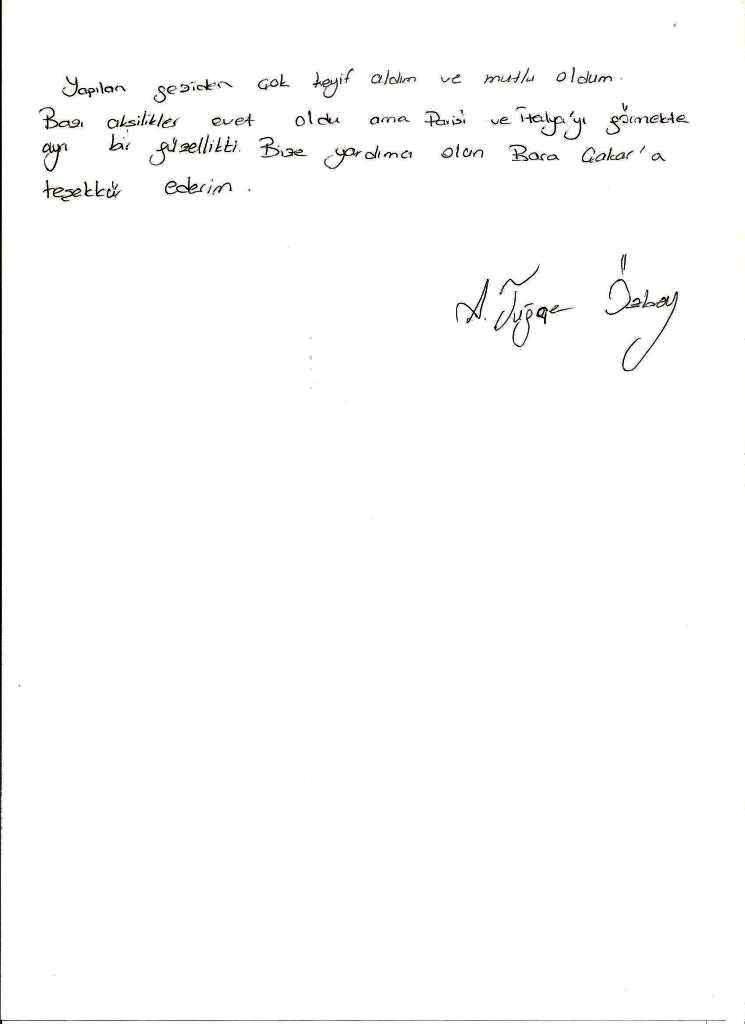 Yapılan geziden çok keyif aldım ve mutlu oldum.
Bazı aksilikler evet oldu ama Parisi ve İtalya'yı görmekte
ayrı bir güzellikti. Bize yardımcı olan Bora Gakar'a
teşekkür ederim.
A. Tuğçe Özbay